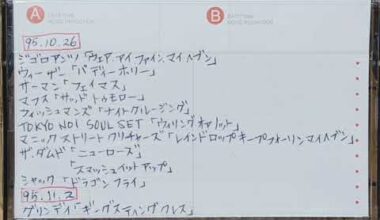 A DATE/TIME
NOISE REDUCTION
B DATE/TIME
NOISE REDUCTION
95.10.26
ジゴロアンツ「ウェア アイ ファインマイ ヘブン」
ウィーザー「バディーホリー」
サーマン「フェイマス」
マフス「サッド トゥモロー」
フィッシュマンズ「ナイトクルージング」
TOKYO NO1 SOUL SET「ウィリング オァ ノット」
マニックストリートプリチャーズ「レインドロップキープフォーリンマイヘブン」
ザ・ダムド「ニューローズ」
「スマッシュイットアップ」
シャック「ドラゴン フライ」
95.11.2
グリンデイ「ギークスティンクブレス」